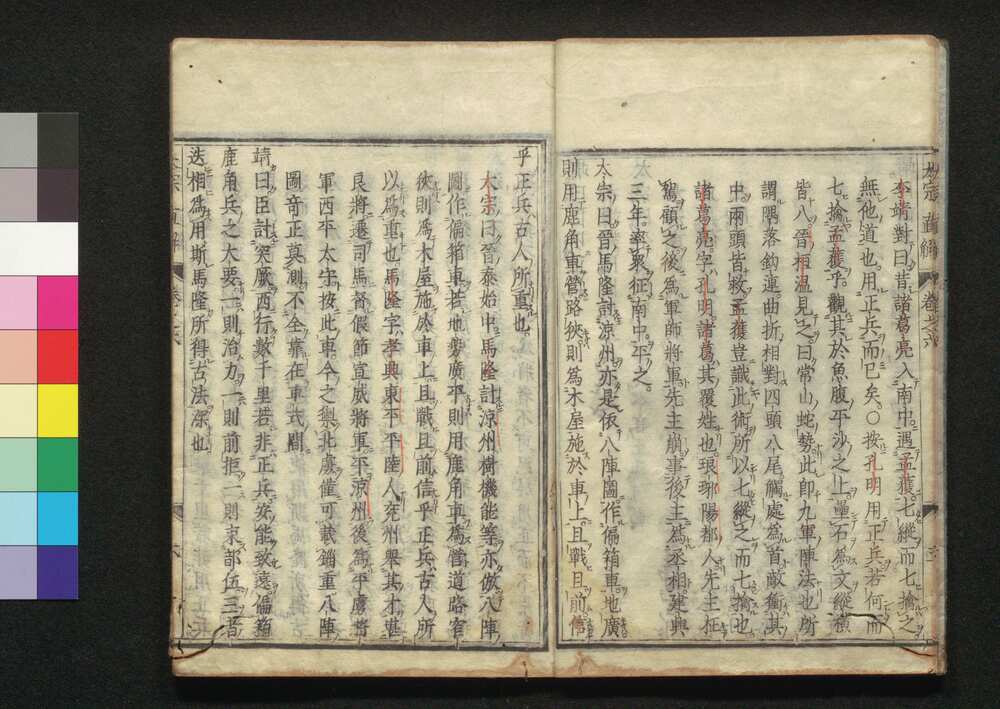 李靖對曰昔諸葛亮入南中遇孟獲七縱而七擒之
無他道也用正兵而已矣○按孔明用正兵若何而
七擒孟獲乎觀其於魚腹平沙之上壘石為文縱橫
皆八晉桓溫見之曰常山蛇勢此即九軍陣法也所
謂隅落鈎連曲折相對四頭八尾觸處為首敵衝其
中兩頭皆救孟獲豈識此術所以七縱之而七擒也
諸葛亮字孔明諸葛其覆姓也琅琊陽都人先主枉
駕顧之後為軍師將軍先主崩事後主為丞相建興
三年率衆征南中平之
太宗曰晉馬隆討凉州亦是依八陣圖作偏箱車地廣
則用鹿角車營路狹則為木屋施於車上且戰且前信
乎正兵古人所重也
太宗曰晉泰始中馬隆討凉州樹機能等亦倣八陣
圖作偏箱車若地勢廣平則用鹿角車為營道路窄
狹則為木屋施於車上且戰且前信乎正兵古人所
以為重也馬隆字孝興東平平陸人兖州舉其才堪
良將遷司馬督假節宣威將軍平凉州後為平虜將
軍西平太守按此車今之禦北虜僅可載輜重八陣
圖奇正莫測不全靠在車式間
靖曰臣討突厥西行數千里若非正兵安能致遠偏箱
鹿角兵之大要一則治力一則前拒一則束部伍三者
迭相為用斯馬隆所得古法深也